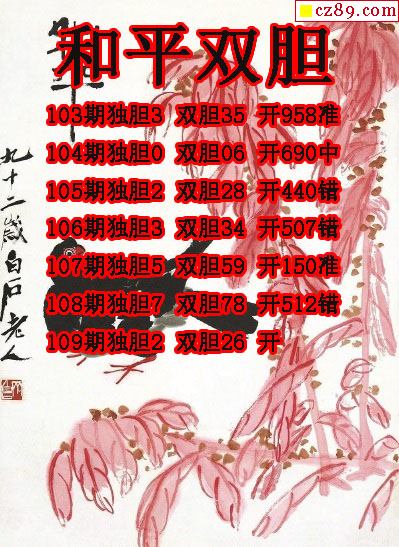 cz89.com
和平双胆
103期独胆3 双胆35 开958准
104期独胆0 双胆06 开690中
105期独胆2 双胆28 开440错
106期独胆3 双胆34 开507错
107期独胆5 双胆59 开150准
108期独胆7 双胆78 开512错
109期独胆2 双胆26 开
九十二岁白石老人